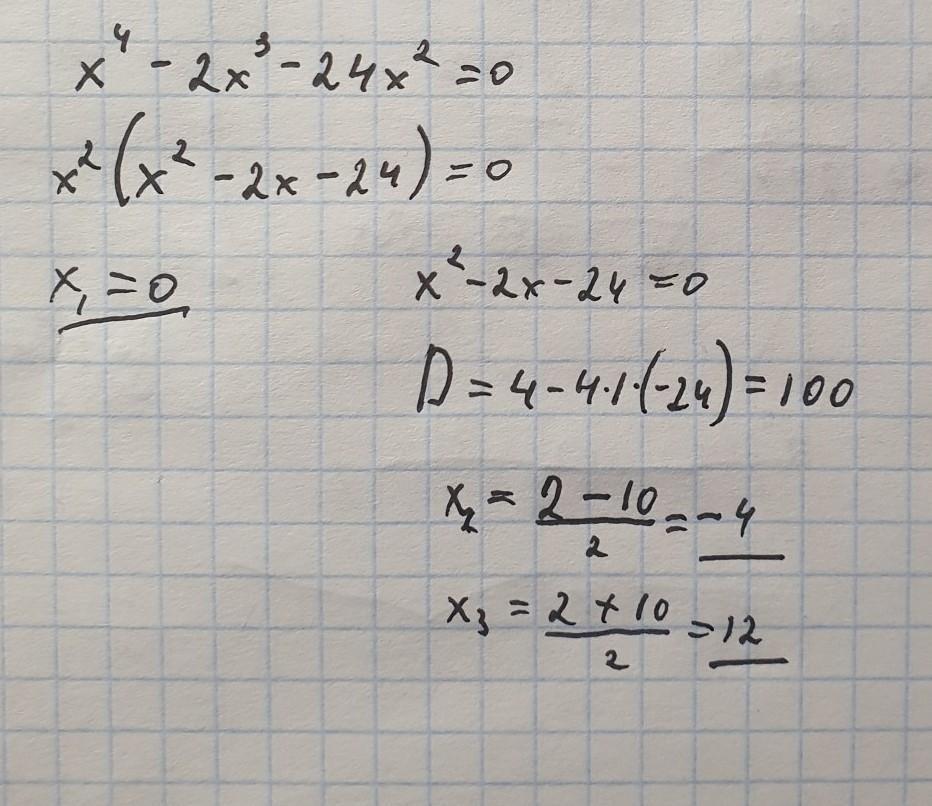 x⁴ - 2x³ - 24x² = 0
x²(x² - 2x - 24) = 0
x₁ = 0
x² - 2x - 24 = 0
D = 4 - 4·1·(-24) = 100
x₂ = (2 - 10)/2 = -4
x₃ = (2 + 10)/2 = 12